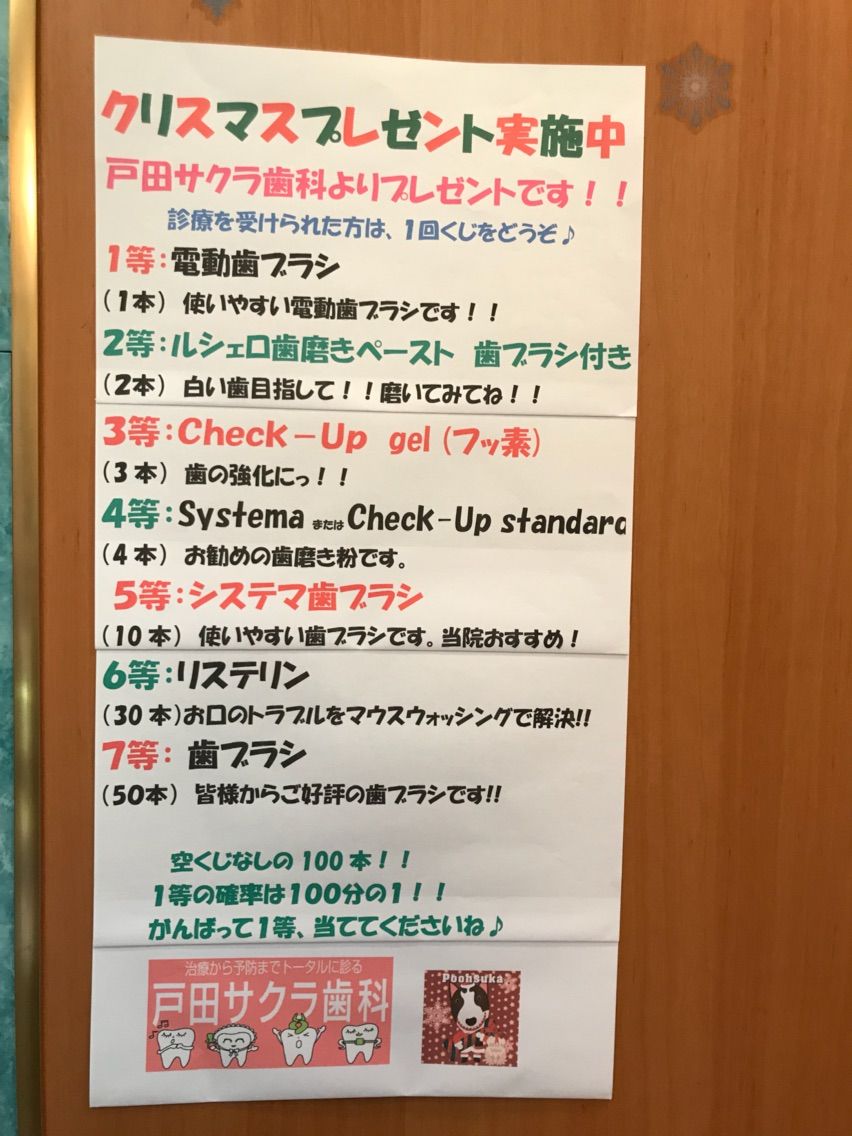 クリスマスプレゼント実施中
戸田サクラ歯科よりプレゼントです！！
診療を受けられた方は、1回くじをどうぞ♪
1等：電動歯ブラシ
（1本） 使いやすい電動歯ブラシです！！
2等：ルシェロ歯磨きペースト 歯ブラシ付き
（2本） 白い歯目指して！！磨いてみてね！！
3等：Check－Up gel（フッ素）
（3本） 歯の強化にっ！！
4等：Systema または Check-Up standard
（4本） お勧めの歯磨き粉です。
5等：システマ歯ブラシ
（10本） 使いやすい歯ブラシです。当院おすすめ！
6等：リステリン
（30本）お口のトラブルをマウスウォッシングで解決!!
7等： 歯ブラシ
（50本） 皆様からご好評の歯ブラシです!!
空くじなしの100本！！
1等の確率は100分の1！！
がんばって1等、当ててくださいね♪
治療から予防までトータルに診る
戸田サクラ歯科
Poohsuka